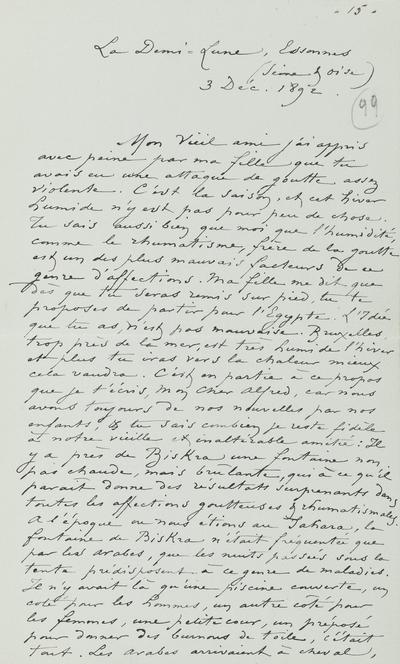 - 15 -
La Demi-Lune, Essonnes
(Seine & Oise)
3 Dec. 1892.
99
Mon Vieil ami j'ai appris
avec peine par ma fille que tu
avais eu une attaque de goutte assez
violente. C'est la saison, et cet hiver
humide n'y est pas pour peu de chose.
Tu sais aussi bien que moi que l'humidité,
comme le rhumatisme, frère de la goutte
est un des plus mauvais facteurs de ce
genre d'affections. Ma fille me dit que
dès que tu seras remis sur pied, tu te
proposes de partir pour l'Egypte. L'Idée
que tu as, n'est pas mauvaise. Bruxelles
trop près de la mer, est très humide l'hiver
et plus tu iras vers la chaleur mieux
cela vaudra. C'est en partie à ce propos
que je t'écris, Mon Cher Alfred, car nous
avons toujours de nos nouvelles par nos
enfants, & tu sais combien je reste fidèle
à notre vieille et inaltérable amitié: Il
y a près de Biskra une fontaine non
pas chaude, mais brulante, qui à ce qu'il
parait donne des résultats surprenants dans
toutes les affections goutteuses & rhumatismales.
A l'époque ou nous étions au Sahara, la
fontaine de Biskra n'était fréquentée que
par les arabes, que les nuits passées sous la
tente prédisposent à ce genre de maladies.
Il n'y avait là qu'une piscine couverte, un
coté pour les hommes, un autre coté pour
les femmes, une petite cour, un préposé
pour donner des burnous de toile, c'était
tout. Les Arabes arrivaient à cheval,